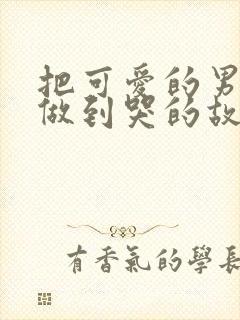 把可愛的男
做到哭的故
有香氣的學長